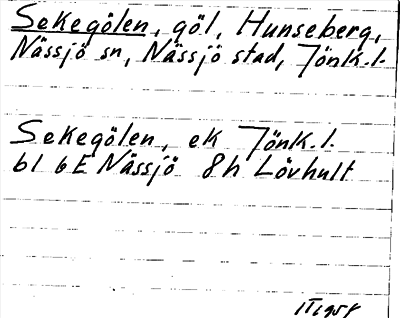 Sekegölen, göl, Hunseberg,
Nässjö sn, Nässjö stad, Jönk. l.
Sekegölen, ek Jönk. l.
bl 6E Nässjö 8h Lövhult